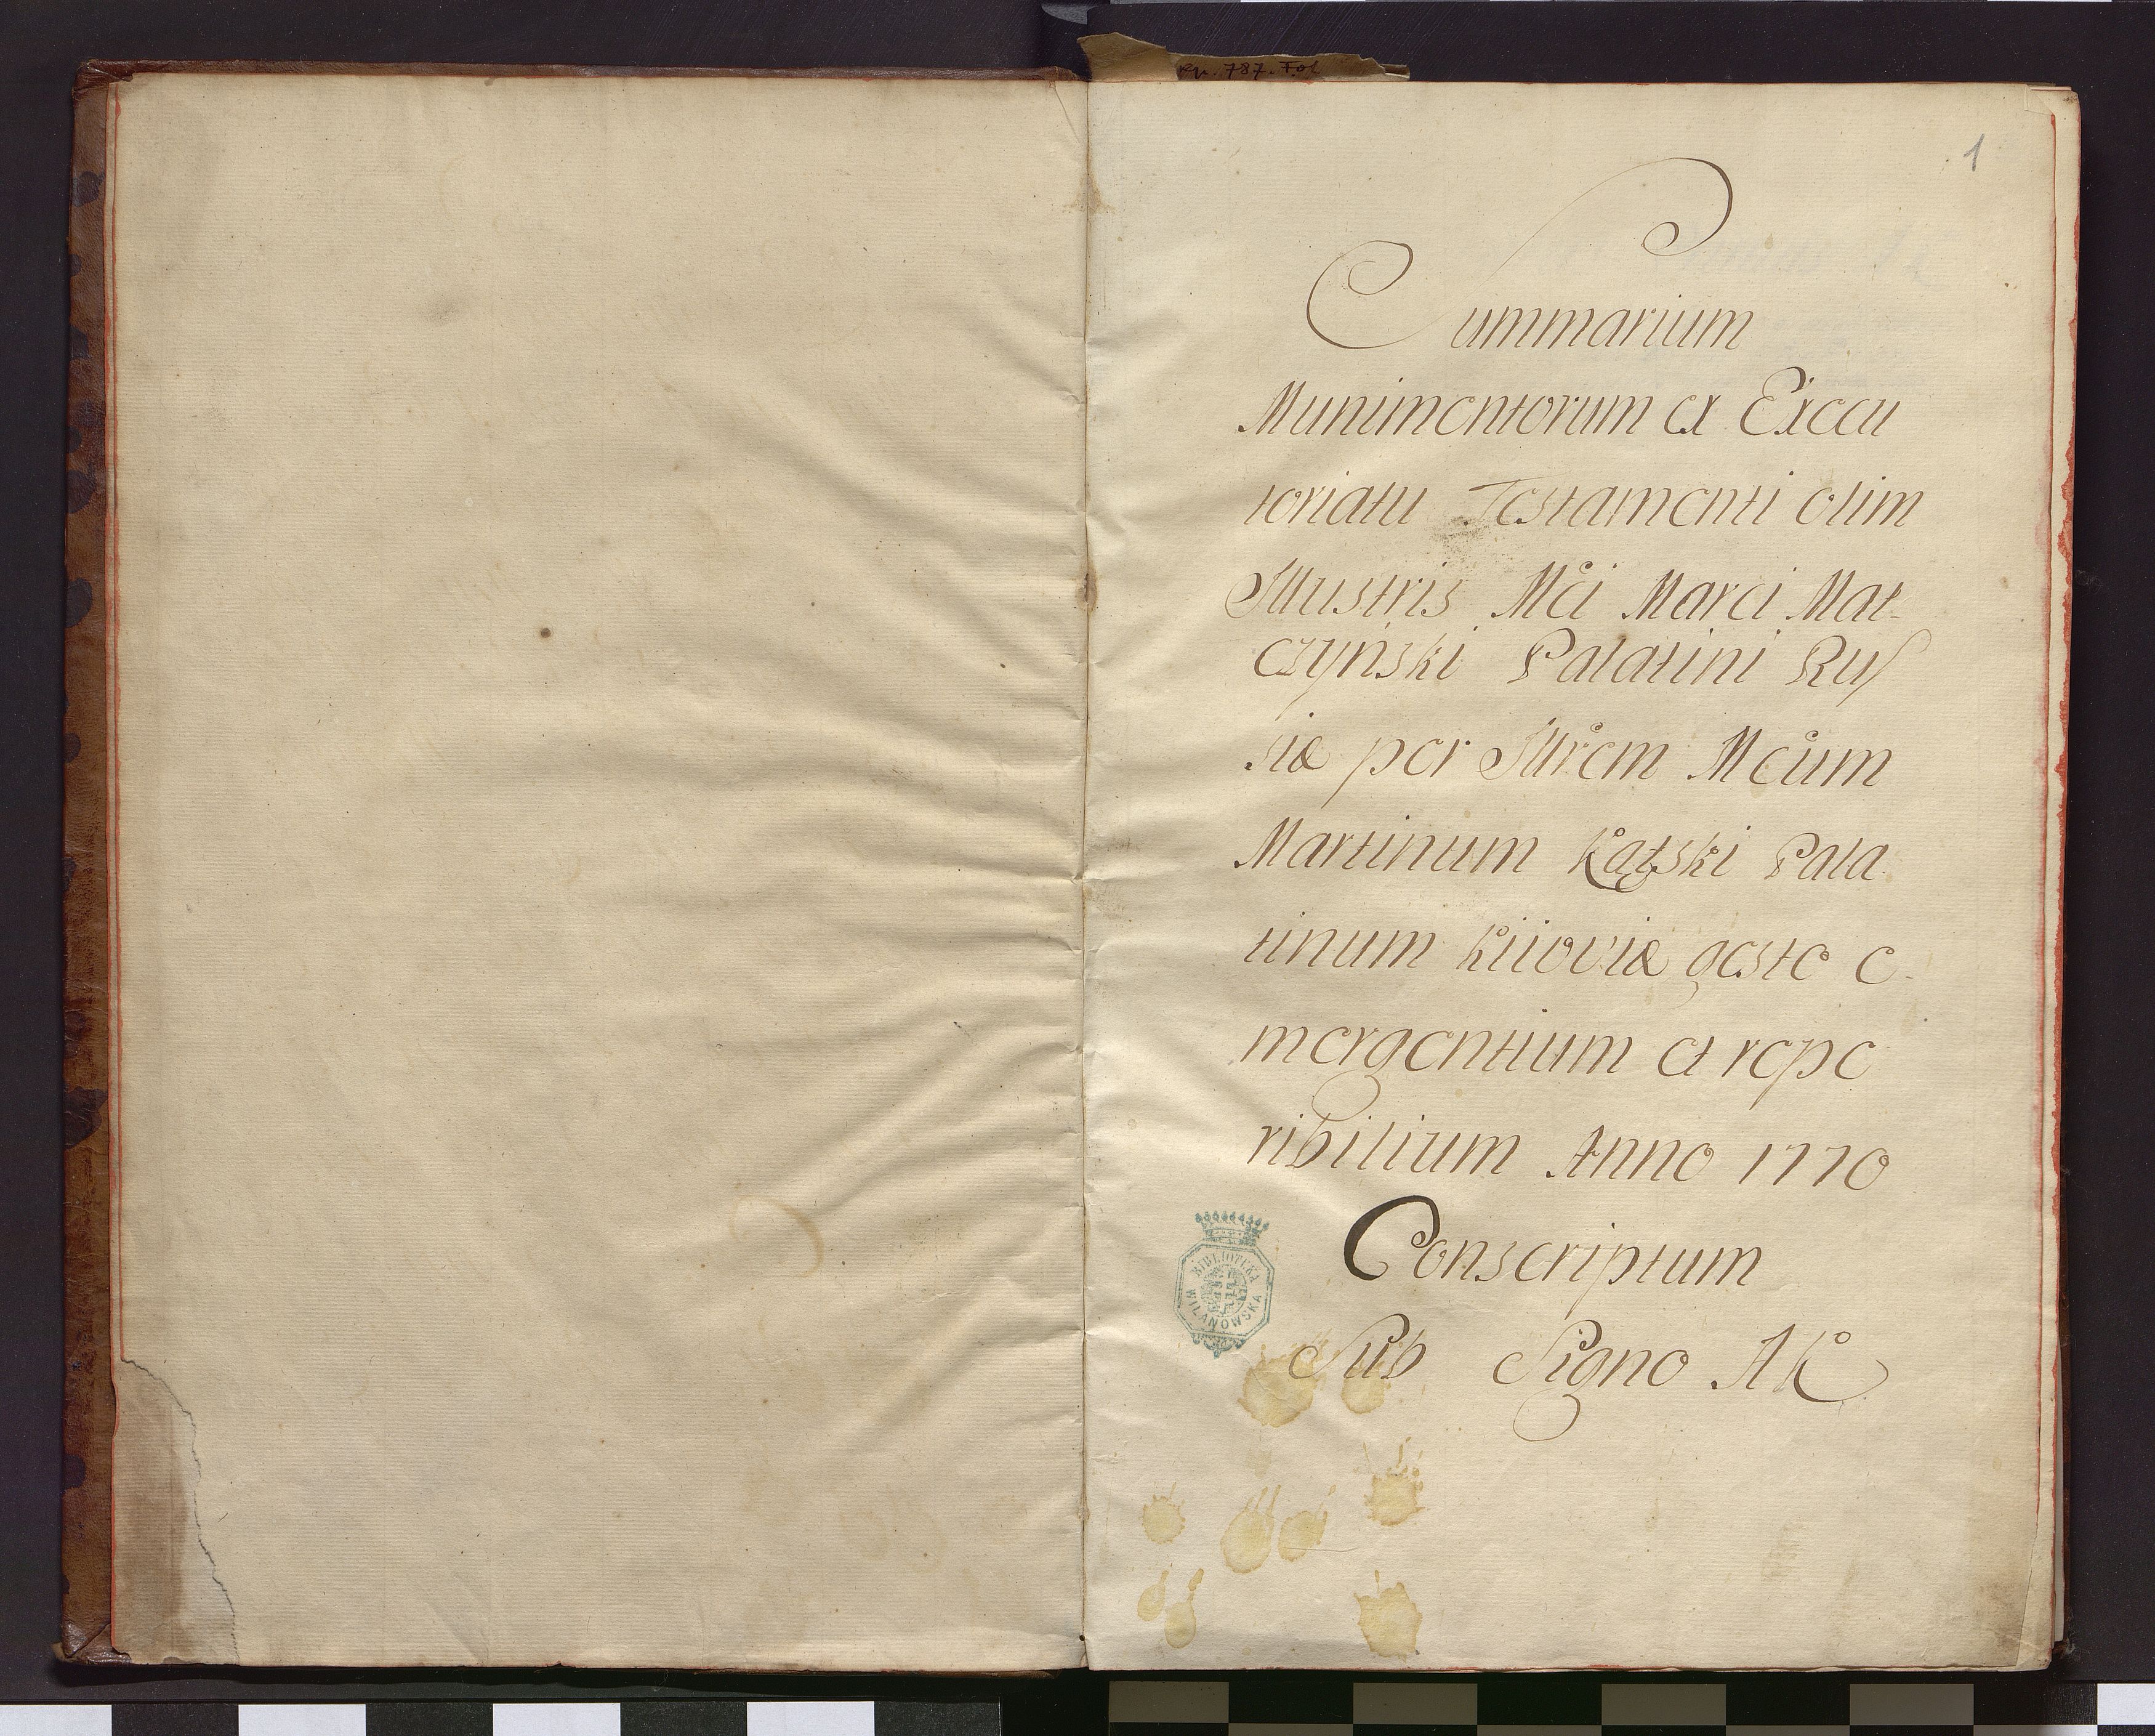 Rp. 787. Fol
1
Summarium
Munimentorum ex Execu
toriatu Testamenti olim
Illustris Mci Marci Mat-
czyński Palatini Rus
siæ per Illrem Mcum
Martinum Kątski Pala
tinum Kiioviæ gesto e-
mergentium et repe
ribilium Anno 1770
Conscriptum
BIBLIOTEKA
WILANOWSKA
Sub Signo AK